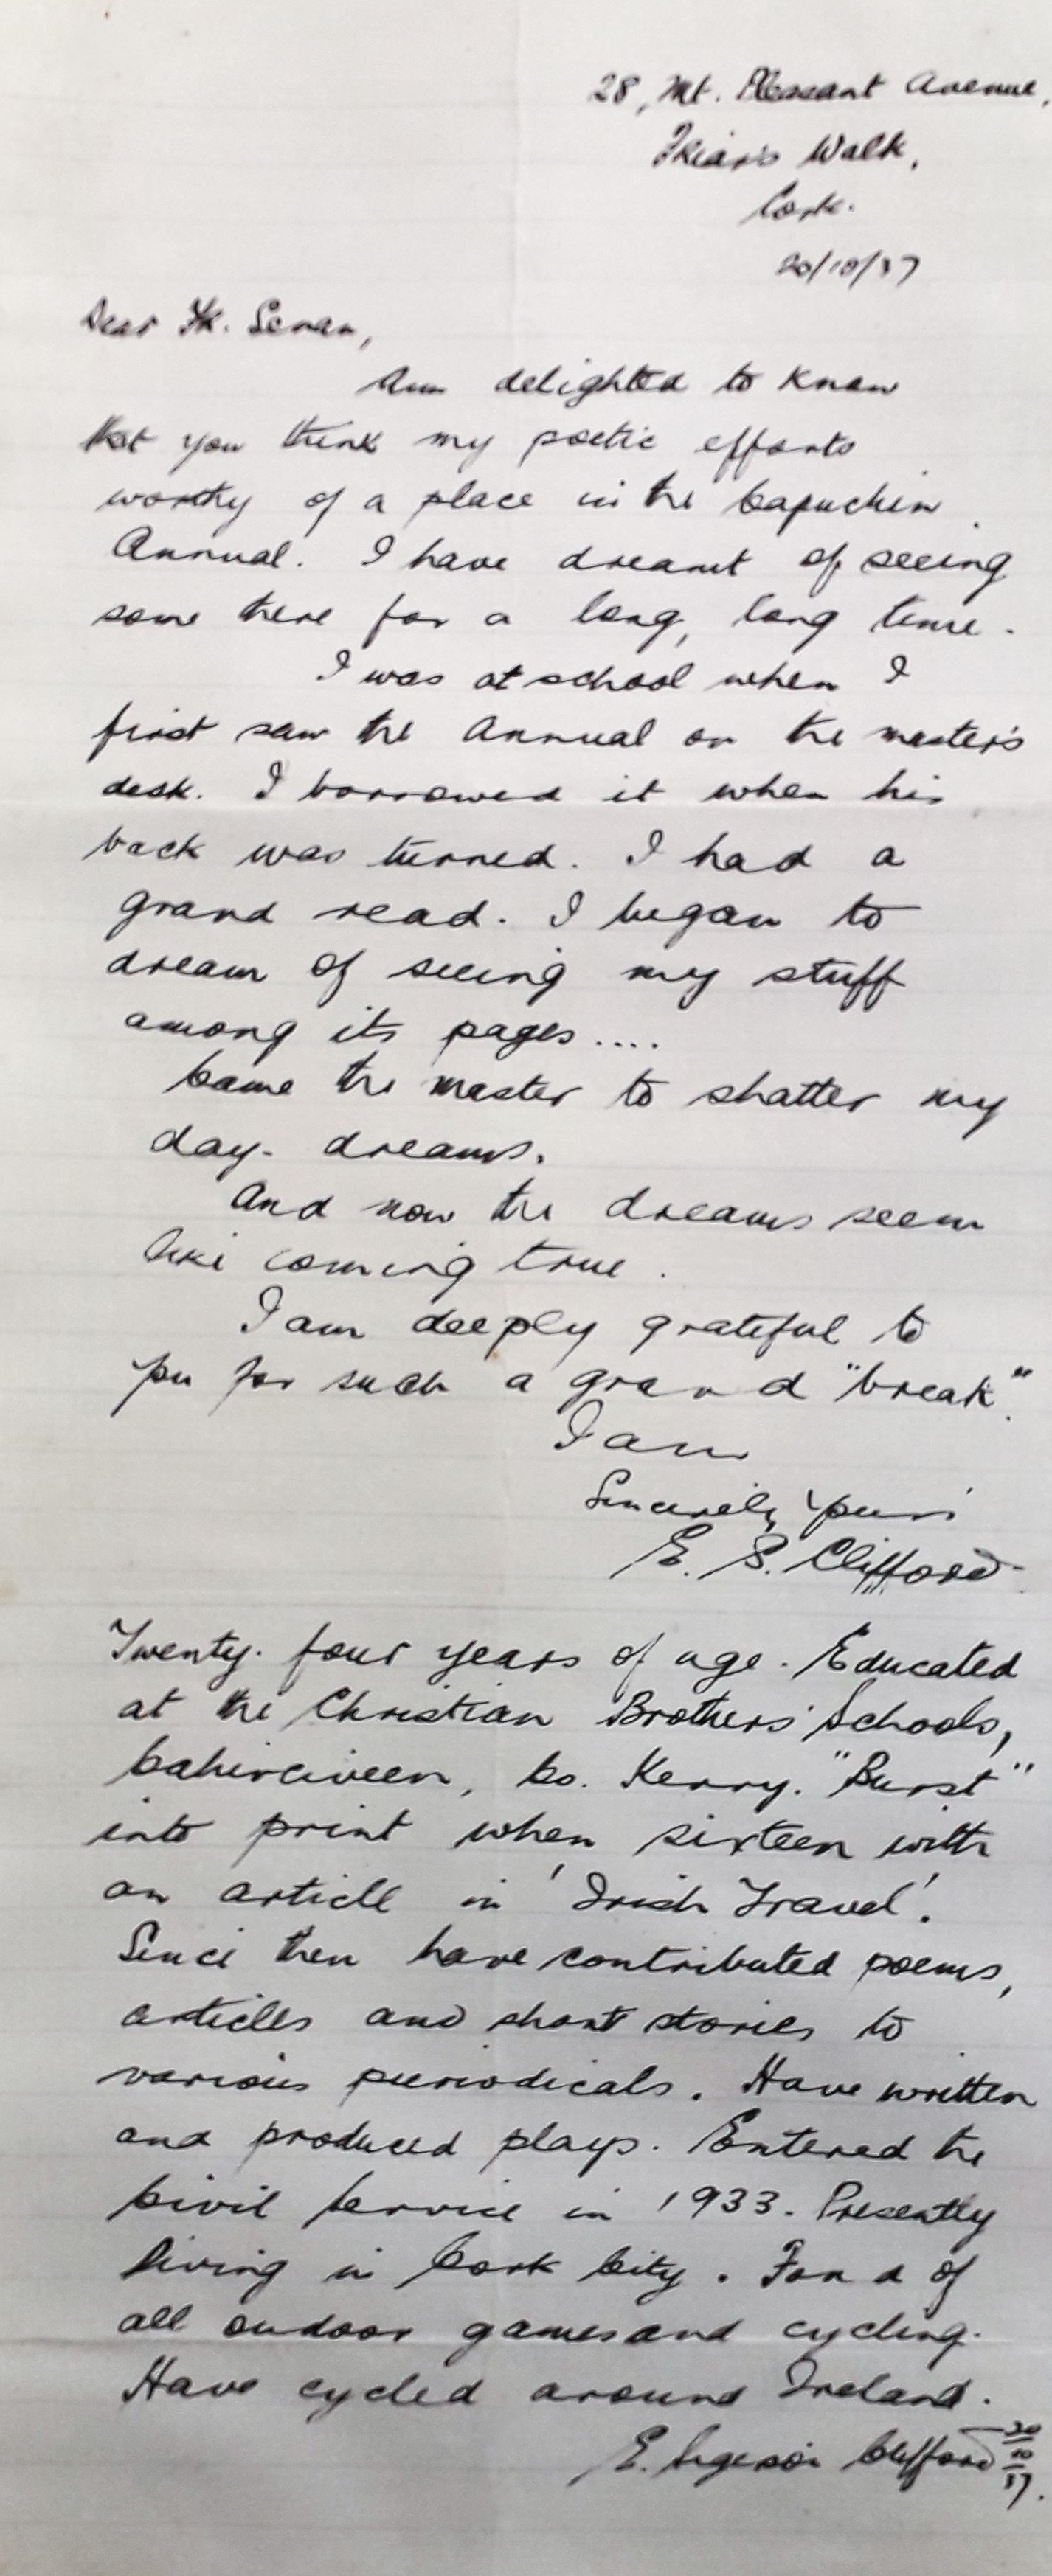 28, Mt. Pleasant Avenue,
Friar's Walk,
Cork.
20/10/37
Dear Fr. Senan,
Am delighted to know
that you think my poetic efforts
worthy of a place in the Capuchin
Annual. I have dreamt of seeing
some there for a long, long time.
I was at school when I
first saw the Annual on the master's
desk. I borrowed it when his
back was turned. I had a
grand read. I began to
dream of seeing my stuff
among its pages....
Came the master to shatter my
day-dreams.
And now the dreams seem
like coming true.
I am deeply grateful to
you for such a grand "break".
I am
Sincerely Yours
E. S. Clifford
Twenty-four years of age. Educated
at the Christian Brothers' Schools,
Cahirciveen, Co. Kerry. "Burst"
into print when sixteen with
an article in 'Irish Travel'.
Since then have contributed poems,
articles and short stories to
various periodicals. Have written
and produced plays. Entered the
Civil Service in 1933. Presently
living in Cork City. Fond of
all oudoor games and cycling.
Have cycled around Ireland.
E. Clifford 20/10/37.